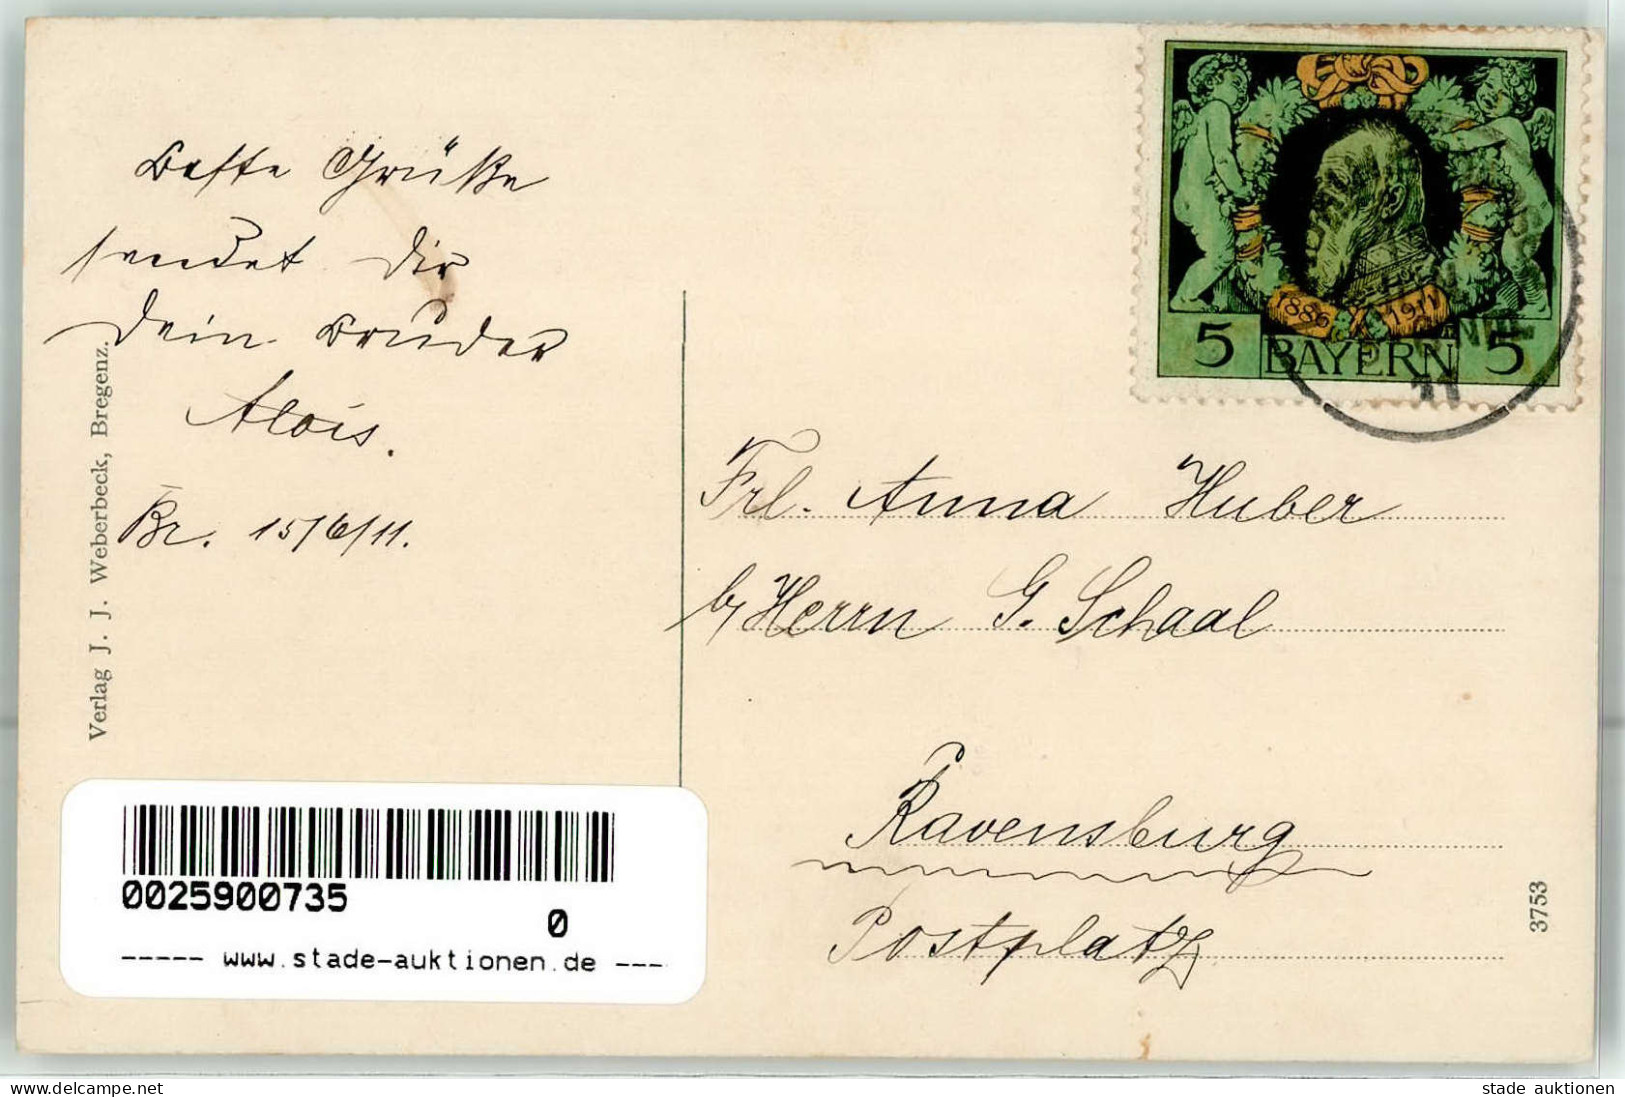 Beste Grüße
sendet Dir
Dein Bruder
Alois.
Br. 15/6/11.
Verlag J. J. Weberbeck, Bregenz.
1886 1911
5 BAYERN 5
11
Frl. Anna Huber
b/ Herrn G. Schaal
Ravensburg
Postplatz
3753
0025900735
0
----- www.stade-auktionen.de ---
www.delcampe.net
stade auktionen